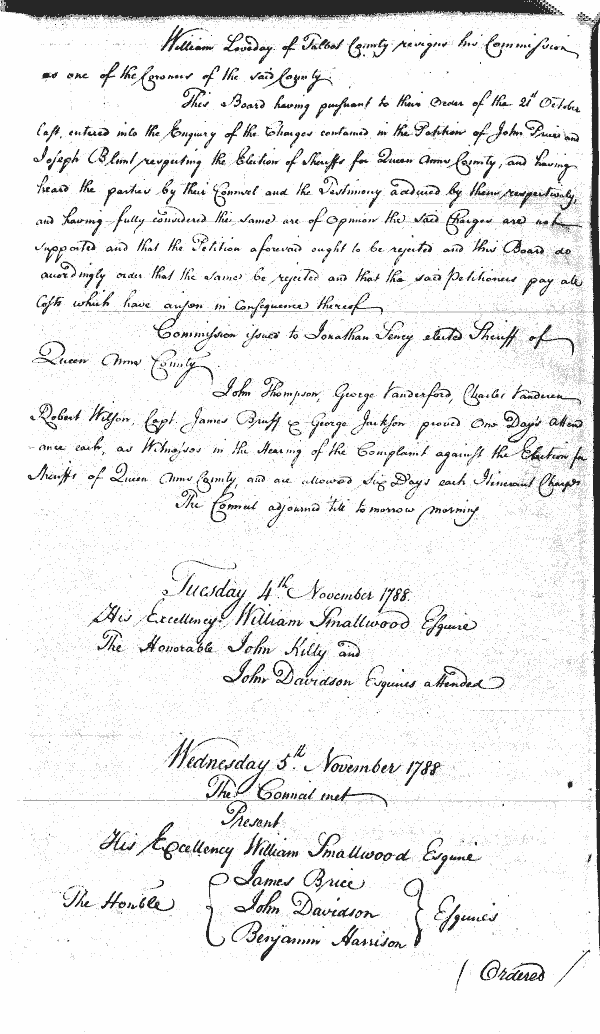 William Loveday of Talbot County resigns his Commission
as one of the Coroners of the said County
This Board having pursuant to their Order of the 21st October
last, entered into the Enquiry of the Charges contained in the Petition of John Price and
Joseph Blunt respecting the Election of Sheriffs for Queen Anns County, and having
heard the parties by their Counsel and the Testimony adduced by them respectively,
and having fully considered the same are of Opinion the said Charges are not
supported and that the Petition aforesaid ought to be rejected and this Board do
accordingly order that the same be rejected and that the said Petitioners pay all
Costs which have arisen in Consequence thereof
Commission issued to Jonathan elected Sheriff of
Queen Anns County
John Thompson, George Vanderford, Charles
Robert Wilson, Capt. James Bruff & George Jackson proved One Day's attend
ance each, as Witnesses in the Hearing of the Complaint against the Election for
Sheriffs of Queen Anns County, and are allowed Six Days each Itinerant Charges
The Council adjourned 'till tomorrow morning
Tuesday 4th November 1788.
His Excellency William Smallwood Esquire
The Honorable John Kilty and
John Davidson Esquires attended
Wednesday 5th November 1788
The Council met
Present
His Excellency William Smallwood Esquire
The Honble { James Brice
John Davidson } Esquires
Benjamin Harrison
( Ordered /